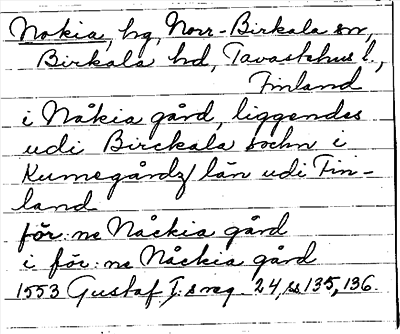 Nokia, hg, Norr-Birkala sn,
Birkala hd, Tavastehus l.,
Finland
i Nåkia gård, liggendes
udi Birckala sochn i
Kumegårdz län udi Fin-
land
för:ne Nåckia gård
i för:ne Nåckia gård
1553 Gustaf I:s reg. 24, ss 135, 136.